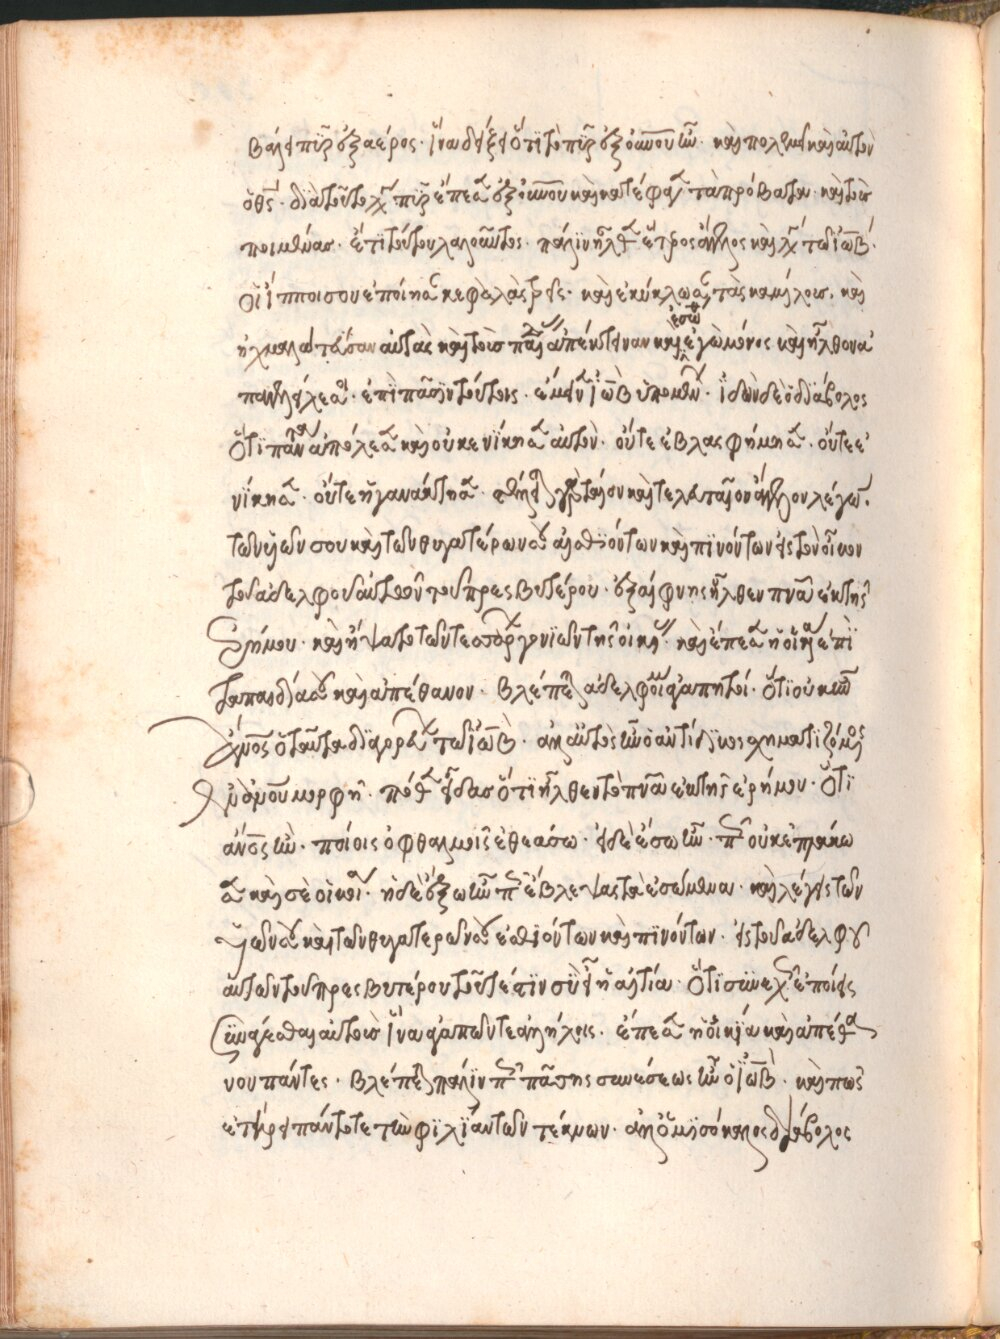 βάλει πῦρ ἐξ ἀέρος. ἵνα δείξει ὅτι τὸ πῦρ ἐξ οὐνοῦ ὢν. καὶ πολεμεῖ καὶ αὐτὸν
ὁ θς. διὰ τοῦτο πῦρ ἔπεσεν ἐξ οὐνοῦ καὶ κατέφαγεν τὰ πρόβατα. καὶ τοὺς
ποιμένας. ἔτι τούτου λαλοῦντος. πάλιν ἦλθεν ἕτερος ἄγγελος καὶ τῶ ἰὼβ.
οἱ ἱπποί σου ἐποίησαν κεφαλὰς τρεῖς. καὶ ἐκύκλωσαν τὰς καμήλους. καὶ
ἠχμαλώτευσαν αὐτὰς καὶ τοὺς παῖδας ἀπέκτειναν καὶ ἐσώθην ἐγὼ μόνος καὶ ἦλθον ἀ
παγγεῖλαί σοι. ἐπὶ πᾶσιν τούτοις. ἰὼβ ὑπομένων. ἰδὼν δὲ ὁ διάβολος
ὅτι πάντα ἀπόλεσεν καὶ οὐκ ἐνίκησεν αὐτὸν. οὔτε ἐβλασφήμησεν. οὔτε ἐ
νίκησεν. οὔτε ἠγανάκτησεν. καὶ τελευταῖον ἄγγελον λέγων.
τῶν υἱῶν σου καὶ τῶν θυγατέρων σου ἐσθιόντων καὶ πινόντων εἰς τὸν οἶκον
τοῦ ἀδελφοῦ αὐτῶν τοῦ πρεσβυτέρου. ἐξαίφνης ἦλθεν πνα ἐκ τῆς
ἐρήμου. καὶ ἥψατο τῶν τεσσάρων γωνιῶν τῆς οἰκίας. καὶ ἔπεσεν ἡ οἰκία ἐπὶ
τὰ παιδία σου καὶ ἀπέθανον. βλέπετε ἀδελφοὶ ἀγαπητοί. ὅτι οὐκ ὢν
ἄνος ὁ ταῦτα τῶ ἰὼβ. αὐτὸς ὢν ὁ ἀντίδικος σχηματιζόμενος
μορφῇ. πόθεν εἶδας ὅτι ἦλθεν τὸ πνα ἐκ τῆς ἐρήμου. ὅτι
ἄνος ὢν. ποίοις ὀφθαλμοῖς ἐθεάσω. εἰ δὲ ἔσω ὢν. πῶς οὐκ ἐπλάκω
σεν καὶ σὲ οἰκία. ἢ δὲ ἔξω ὢν πῶς ἔβλεψας τὰ ἐσώμενα. καὶ λέγεις τῶν
υἱῶν σου καὶ τῶν θυγατέρων σου ἐσθιόντων καὶ πινόντων. εἰς τοῦ ἀδελφοῦ
αὐτῶν τοῦ πρεσβυτέρου τοῦτέστιν ἡ αἰτία. ὅτι συνεχῶς ἐποίεις
συνάγεσθαι αὐτοὺς ἵνα ἀγαπῶνται ἀλλήλοις. ἔπεσεν ἡ οἰκία καὶ ἀπέθα
νον πάντες. βλέπετε πάλιν πῶς πάσης συνέσεως ὢν ὁ ἰὼβ. καὶ πῶς
ἐτήρει πάντοτε τὴν φιλίαν τῶν τέκνων. ὁ μισόκαλος διάβολος